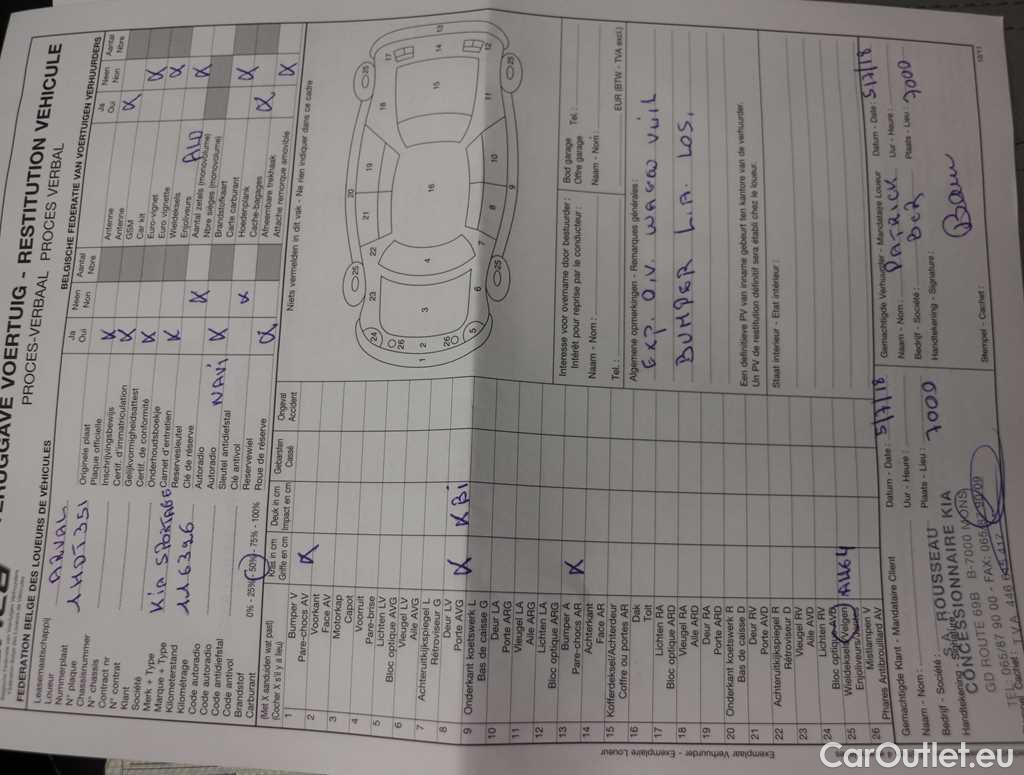 TERUGGAVE VOERTUIG - RESTITUTION VEHICULE
PROCES-VERBAAL PROCES VERBAL
FEDERATION BELGE DES LOUEURS DE VÉHICULES
BELGISCHE FEDERATIE VAN VOERTUIGEN VERHUURDERS
Leasemaatschappij
Loueur
ARVAL
Nummerplaat
N° plaque
1HDJ351
Chassisnummer
N° chassis
Contract nr
N° contrat
Klant
Société
Merk + Type
Marque + Type
Kia SPORTAGE
Kilometerstand
Kilométrage
116396
Code autoradio
Code autoradio
Code antidiefstal
Code antivol
Brandstof
Carburant
0% - 25% - 50% - 75% - 100%
Ja Neen Aantal
Oui Non Nbre
Originele plaat
Plaque officielle
Inschrijvingsbewijs
Certif. d'immatriculation
Gelijkvormigheidsattest
Certif. de conformité
Onderhoudsboekje
Carnet d'entretien
Reservesleutel
Clé de réserve
Autoradio
Autoradio
NAVI
Sleutel antidiefstal
Clé antivol
Reservewiel
Roue de réserve
Ja Neen Aantal
Oui Non Nbre
Antenne
Antenne
GSM
Car kit
Euro-vignet
Euro vignette
Wieldeksels
Enjoliveurs
ALU
Aantal zetels (monovolume)
Nbre sièges (monovolume)
Brandstofkaart
Carte carburant
Hoedenplank
Cache-bagages
Afneembare trekhaak
Attache remorque amovible
(Met X aanduiden wat past)
(Cocher X s'il y a lieu)
Kras in cm
Griffe en cm
Deuk in cm
Impact en cm
Gebarsten
Cassé
Ongeval
Accident
Niets vermelden in dit vak - Ne rien indiquer dans ce cadre
1 Bumper V
Pare-chocs AV
2 Voorkant
Face AV
3 Motorkap
Capot
4 Voorruit
Pare-brise
5 Lichten LV
Bloc optique AVG
6 Vleugel LV
Aile AVG
7 Achteruitkijkspiegel L
Rétroviseur G
8 Deur LV
Porte AVG
9 Onderkant koetswerk L
Bas de caisse G
10 Deur LA
Porte ARG
11 Vleugel LA
Aile ARG
12 Lichten LA
Bloc optique ARG
13 Bumper A
Pare-chocs AR
14 Achterkant
Face AR
15 Kofferdeksel/Achterdeur
Coffre ou portes AR
16 Dak
Toit
17 Lichten RA
Bloc optique ARD
18 Vleugel RA
Aile ARD
19 Deur RA
Porte ARD
20 Onderkant koetswerk R
Bas de caisse D
21 Deur RV
Porte AVD
22 Achteruitkijkspiegel R
Rétroviseur D
23 Vleugel RV
Aile AVD
24 Lichten RV
Bloc optique AVD
25 Wieldeksels/Velgen
26 Mistlampen V
Phares Antibrouillard AV
Interesse voor overname door bestuurder :
Intérêt pour reprise par le conducteur :
Naam - Nom :
Tel. :
Bod garage
Offre garage
Tel. :
Naam - Nom :
EUR (BTW - TVA excl.)
Algemene opmerkingen - Remarques générales :
BUMPER L.A. LOS,
Een definitieve PV van inname gebeurt ten kantore van de verhuurder.
Un PV de restitution définitif sera établi chez le loueur.
Staat interieur - Etat intérieur :
Gemachtigde Klant - Mandataire Client
Datum - Date : 5/7/18
Naam - Nom :
Uur - Heure :
Bedrijf - Société :
Plaats - Lieu : 7000
Handtekening
S.A. ROUSSEAU
CONCESSIONNAIRE KIA
GD ROUTE 69B B-7000 MONS
Gemachtigde Verhuurder - Mandataire Loueur
Datum - Date : 5/7/18
Naam - Nom : PATRICK
Uur - Heure :
Bedrijf - Société : BCR
Plaats - Lieu : 7000
Handtekening - Signature :
Stempel - Cachet :
Exemplaar Verhuurder - Exemplaire Loueur
CarOutlet.eu